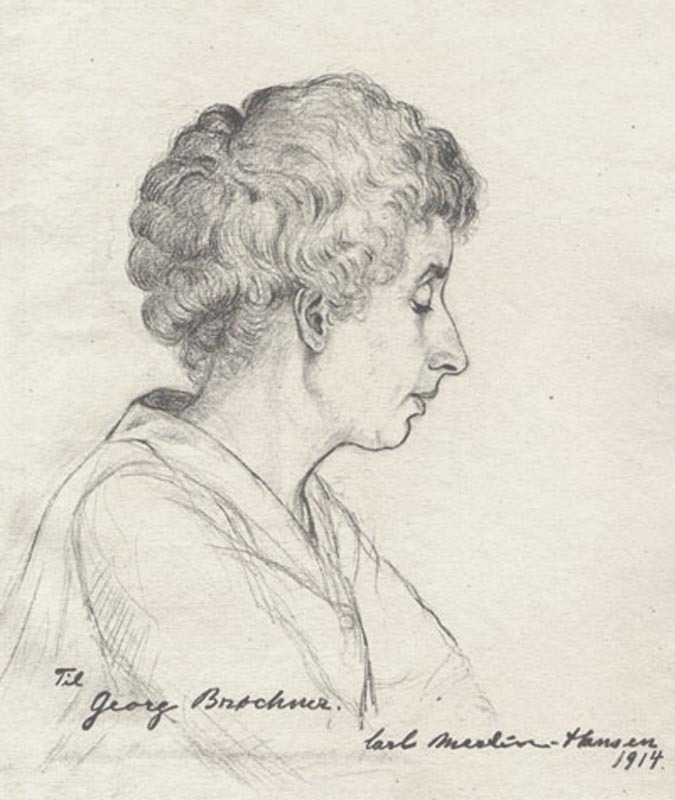 Til
Georg Brøchner.
Carl Martin-Hansen
1914.